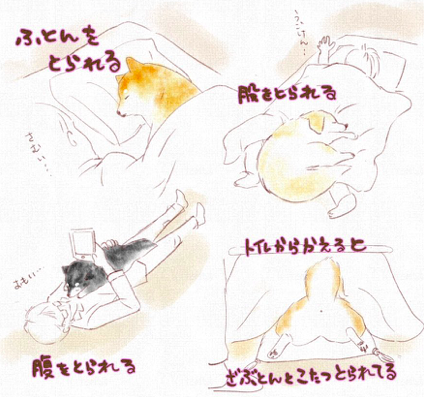 ふとんを
とられる
さむい…
うごけん…
股をとられる
おもい…
腹をとられる
トイレからかえると
ざぶとんとこたつとられてる